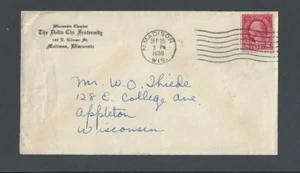 Wisconsin Chapter
The Delta Chi Fraternity
Madison, Wisconsin
MADISON
SEP 25
3 PM
WIS.
Mr. W. O. Thiede
128 E. College Ave
Appleton
Wisconsin